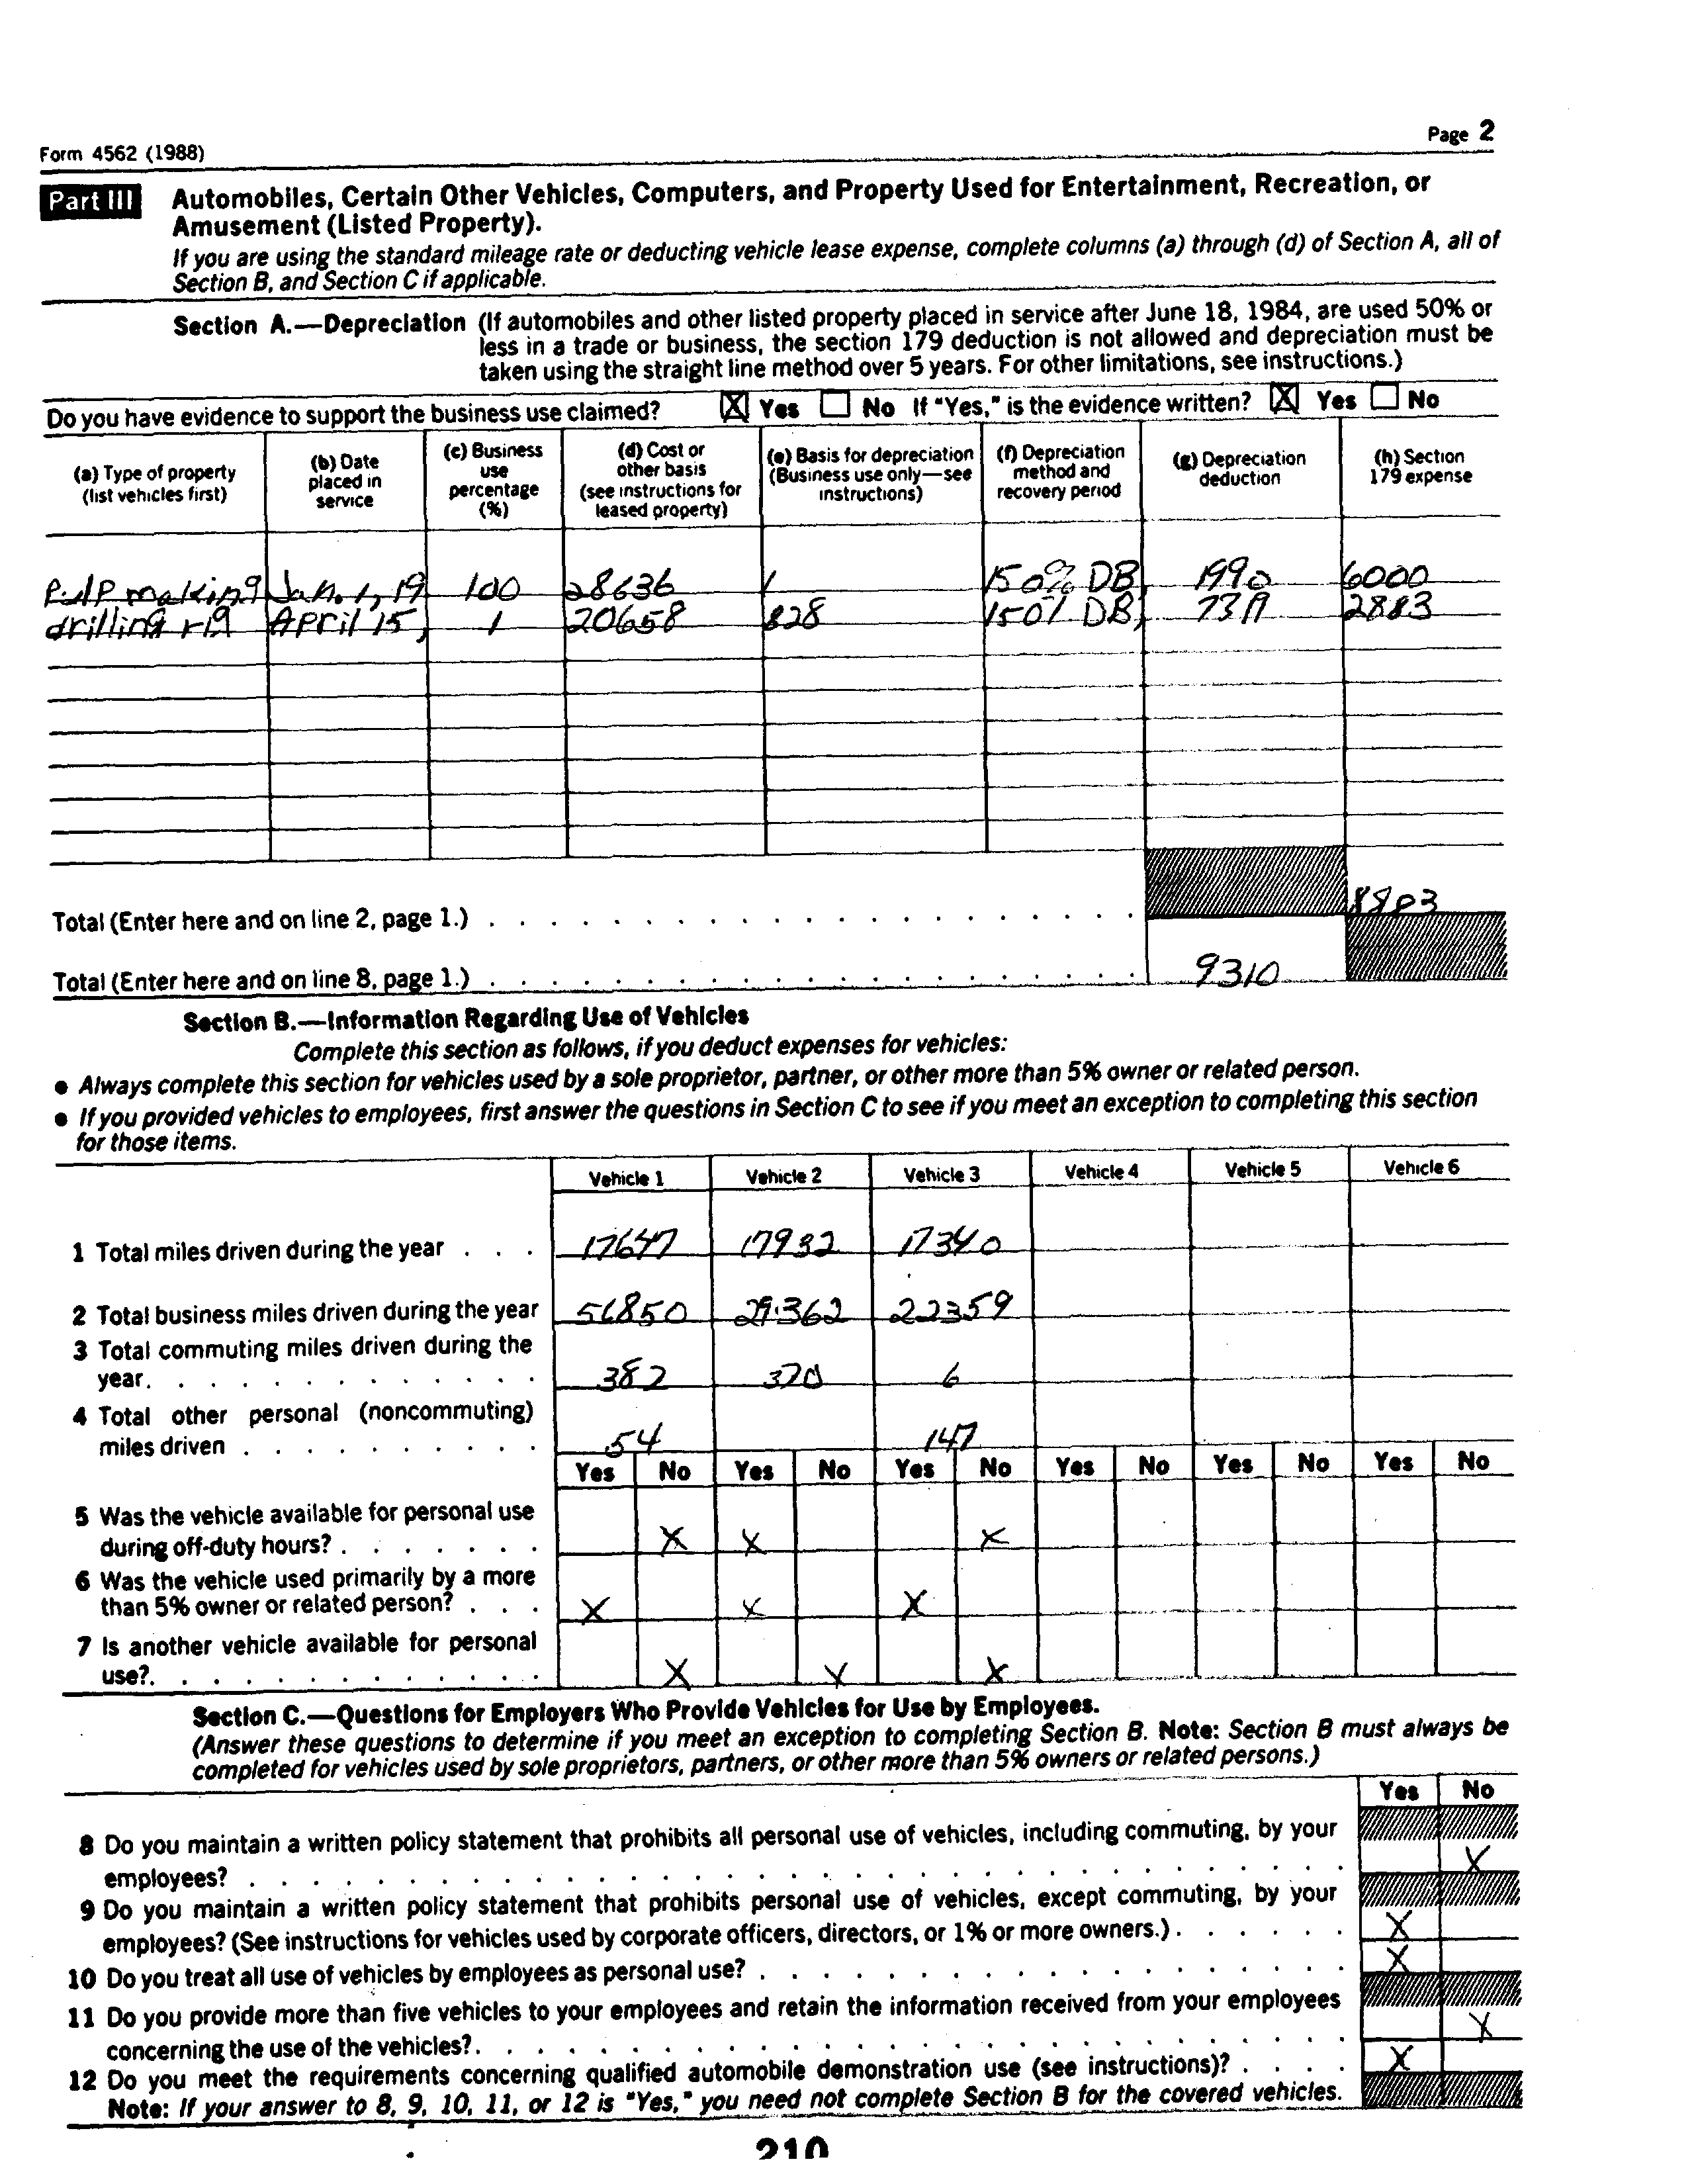 Form 4562 (1988)
Page 2
Part III Automobiles, Certain Other Vehicles, Computers, and Property Used for Entertainment, Recreation, or
Amusement (Listed Property).
If you are using the standard mileage rate or deducting vehicle lease expense, complete columns (a) through (d) of Section A, all of
Section B, and Section C if applicable.
Section A.—Depreciation (If automobiles and other listed property placed in service after June 18, 1984, are used 50% or
less in a trade or business, the section 179 deduction is not allowed and depreciation must be
taken using the straight line method over 5 years. For other limitations, see instructions.)
Do you have evidence to support the business use claimed? X Yes No If "Yes," is the evidence written? X Yes No
(a) Type of property
(list vehicles first)
(b) Date
placed in
service
(c) Business
use
percentage
(%)
(d) Cost or
other basis
(see instructions for
leased property)
(e) Basis for depreciation
(Business use only—see
instructions)
(f) Depreciation
method and
recovery period
(g) Depreciation
deduction
(h) Section
179 expense
Pulp making Jan. 1, 19 100 28636 1 150% DB 1990 6000
drilling rig April 15, 1 20658 828 150% DB, 2883
Total (Enter here and on line 2, page 1.)
Total (Enter here and on line 8, page 1.) 9310
Section B.—Information Regarding Use of Vehicles
Complete this section as follows, if you deduct expenses for vehicles:
• Always complete this section for vehicles used by a sole proprietor, partner, or other more than 5% owner or related person.
• If you provided vehicles to employees, first answer the questions in Section C to see if you meet an exception to completing this section
for those items.
Vehicle 1 Vehicle 2 Vehicle 3 Vehicle 4 Vehicle 5 Vehicle 6
1 Total miles driven during the year . . . 17647 17932 17340
2 Total business miles driven during the year 56850 29362 22359
3 Total commuting miles driven during the
year. 382 370 6
4 Total other personal (noncommuting)
miles driven 54 147
Yes No Yes No Yes No Yes No Yes No Yes No
5 Was the vehicle available for personal use
during off-duty hours? X X X
6 Was the vehicle used primarily by a more
than 5% owner or related person? X X X
7 Is another vehicle available for personal
use? X X X
Section C.—Questions for Employers Who Provide Vehicles for Use by Employees.
(Answer these questions to determine if you meet an exception to completing Section B. Note: Section B must always be
completed for vehicles used by sole proprietors, partners, or other more than 5% owners or related persons.)
Yes No
8 Do you maintain a written policy statement that prohibits all personal use of vehicles, including commuting, by your
employees? X
9 Do you maintain a written policy statement that prohibits personal use of vehicles, except commuting, by your
employees? (See instructions for vehicles used by corporate officers, directors, or 1% or more owners.) X
10 Do you treat all use of vehicles by employees as personal use? X
11 Do you provide more than five vehicles to your employees and retain the information received from your employees
concerning the use of the vehicles? X
12 Do you meet the requirements concerning qualified automobile demonstration use (see instructions)? X
Note: If your answer to 8, 9, 10, 11, or 12 is "Yes," you need not complete Section B for the covered vehicles.
210